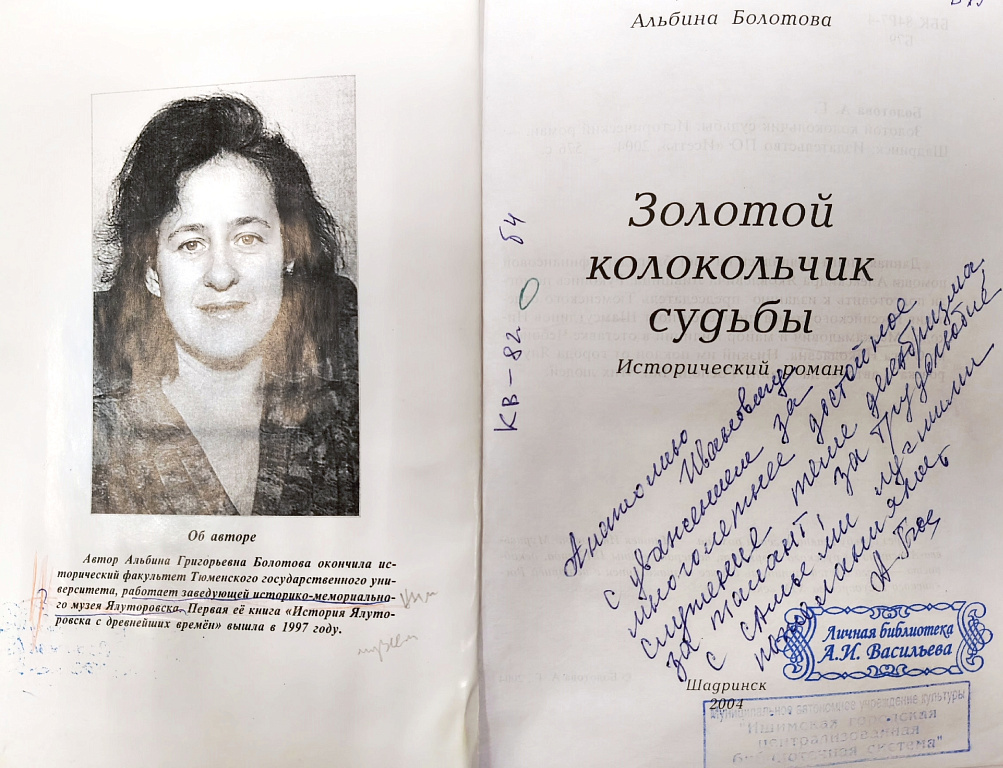 Об авторе
Автор Альбина Григорьевна Болотова окончила ис-
торический факультет Тюменского государственного уни-
верситета, работает заведующей историко-мемориально-
го музея Ялуторовска. Первая её книга «История Ялуто-
ровска с древнейших времён» вышла в 1997 году.
музей
Альбина Болотова
Золотой
колокольчик
судьбы
Исторический роман
КВ-82 54
Анатолию
Ивановичу
с уважением за
многолетнее достойное
служение теме декабризма
за талант, за трудолюбие
с самыми лучшими
пожеланиями
Личная библиотека
А.И. Васильева
Шадринск
2004
Муниципальное автономное учреждение культуры
"Ишимская городская
централизованная
библиотечная система"